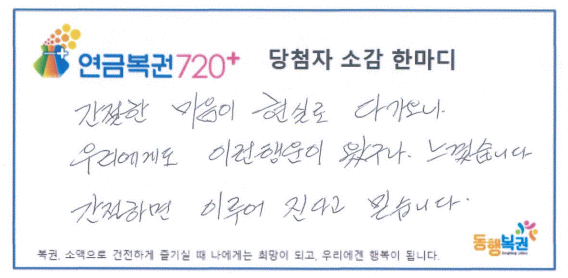 연금복권720+ 당첨자 소감 한마디
간절한 마음이 현실로 다가오니.
우리에게도 이런행운이 왔구나. 느꼈습니다
간절하면 이루어 진다고 믿습니다.
복권, 소액으로 건전하게 즐기실 때 나에게는 희망이 되고, 우리에겐 행복이 됩니다.
동행복권